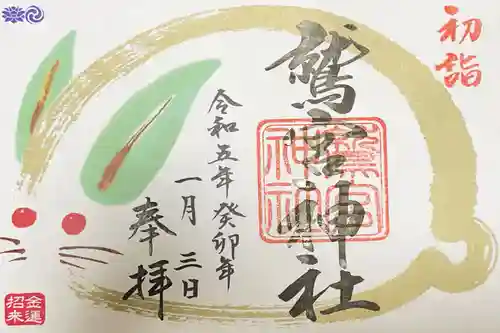 初詣
鷲宮神社
鷲宮神社
令和五年癸卯年
一月三日
奉拝
金運招来